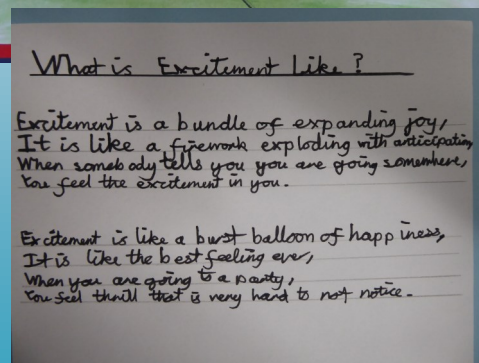 What is Excitement Like?
Excitement is a bundle of expanding joy,
It is like a firework exploding with anticipation,
When somebody tells you you are going somewhere,
You feel the excitement in you.
Excitement is like a burst balloon of happiness,
It is like the best feeling ever,
When you are going to a party,
You feel thrill that is very hard to not notice.